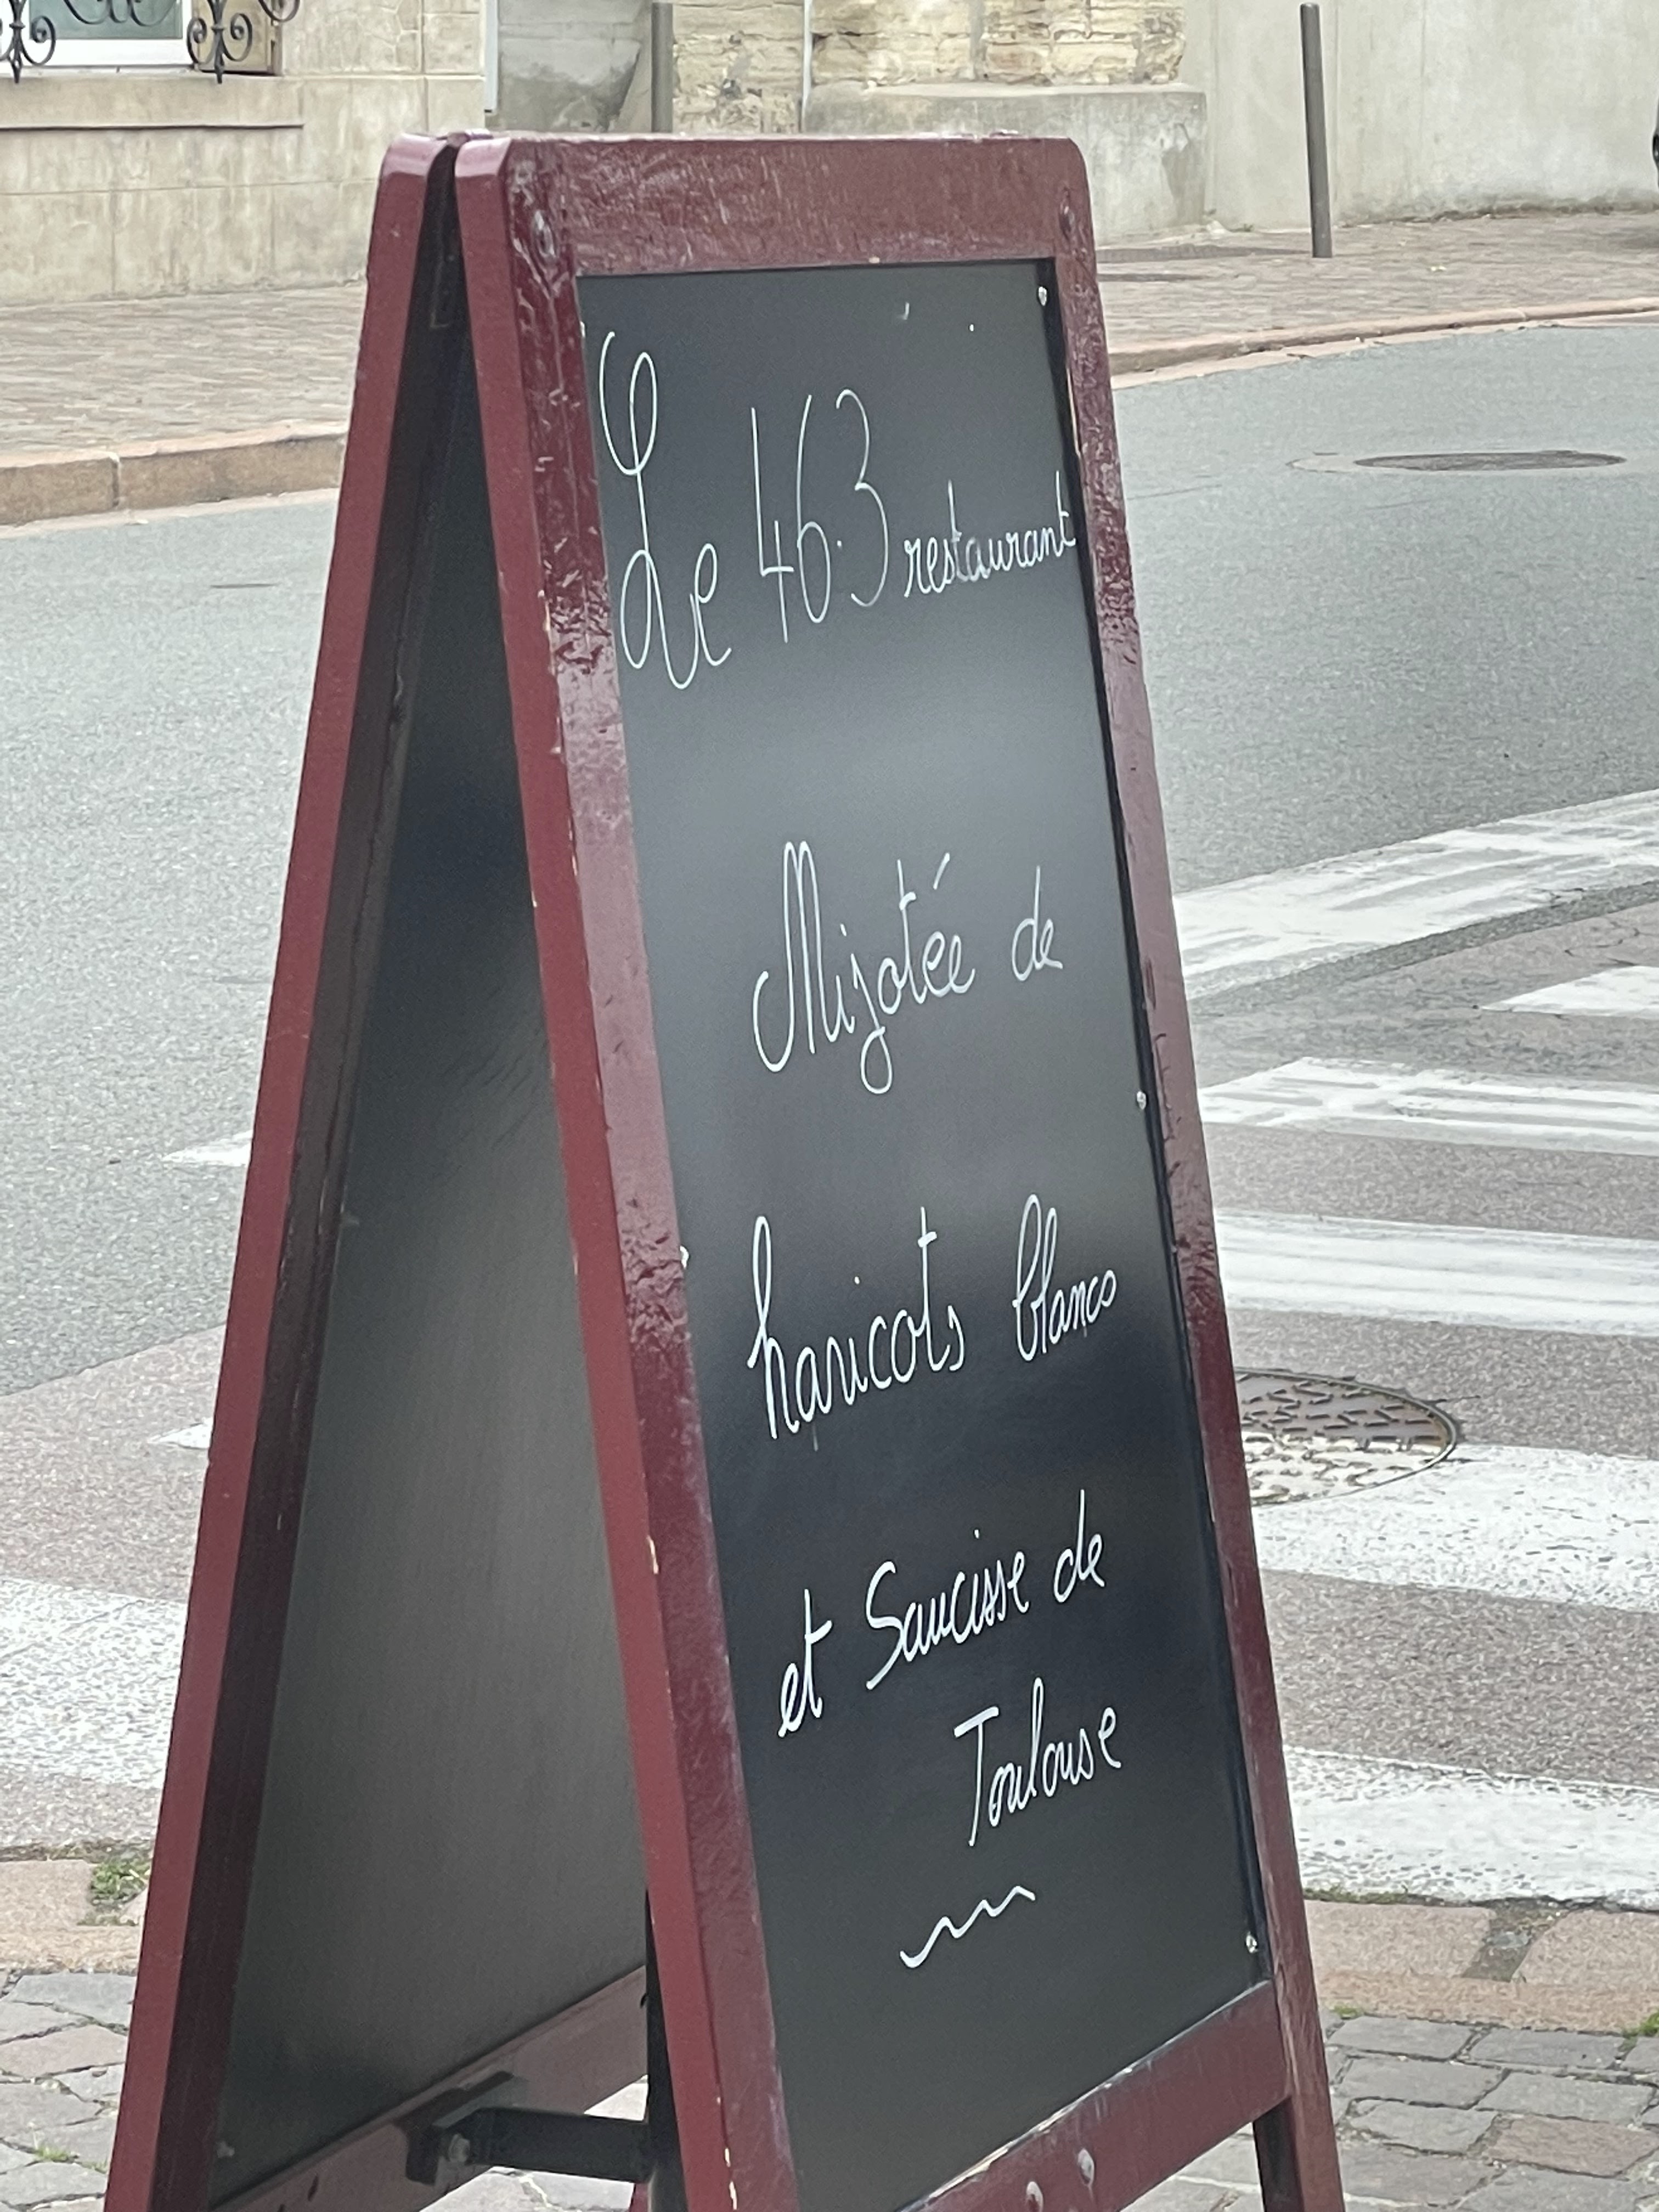 Le 46.3 restaurant
Mijotée de
haricots blancs
et Saucisse de
Toulouse